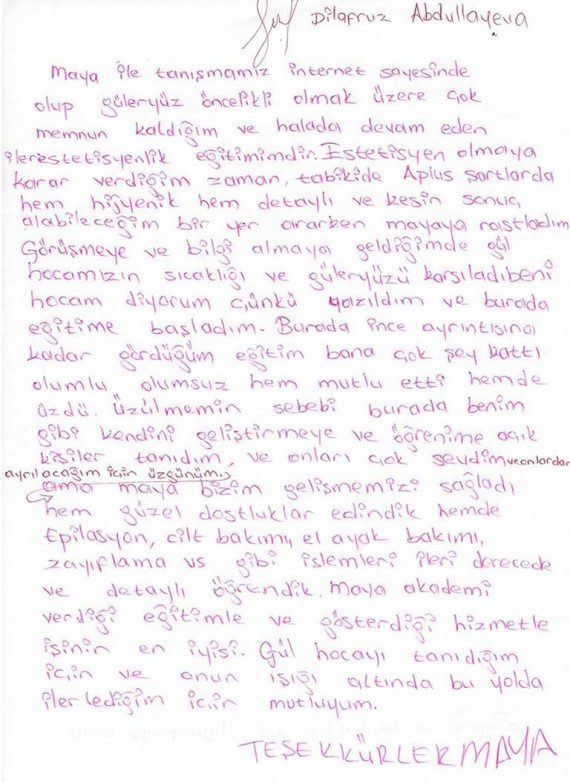 Dilafruz Abdullayeva
Maya ile tanışmamız internet sayesinde
olup güleryüz öncelikli olmak üzere çok
memnun kaldığım ve halada devam eden
ilerestetisyenlik eğitimimdir. Estetisyen olmaya
karar verdiğim zaman, tabikide Aplus şartlarda
hem hijyenik hem detaylı ve kesin sonuç,
alabileceğim bir yer ararken mayaya rastladım
Görüşmeye ve bilgi almaya geldiğimde gül
hocamızın sıcaklığı ve güleryüzü karşıladıbeni
hocam diyorum çünkü yazıldım ve burada
eğitime başladım. Burada ince ayrıntısına
kadar gördüğüm eğitim bana çok şey kattı
olumlu, olumsuz hem mutlu etti hemde
üzdü. Üzülmemin sebebi burada benim
gibi kendini geliştirmeye ve öğrenime açık
kişiler tanıdım, ve onları çok seydim ve onlardan
ayrılacağım için üzgünüm.
ama maya bizim gelişmemizi sağladı
hem güzel dostluklar edindik hemde
Epilasyon, cilt bakımı, el ayak bakımı,
zayıflama vs gibi işlemleri ileri derecede
ve detaylı öğrendik. Maya akademi
verdiği eğitimle ve gösterdiği hizmetle
işinin en iyisi. Gül hocayı tanıdığım
için ve onun ışığı altında bu yolda
ilerlediğim için mutluyum.
TEŞEKKÜRLER MAYA